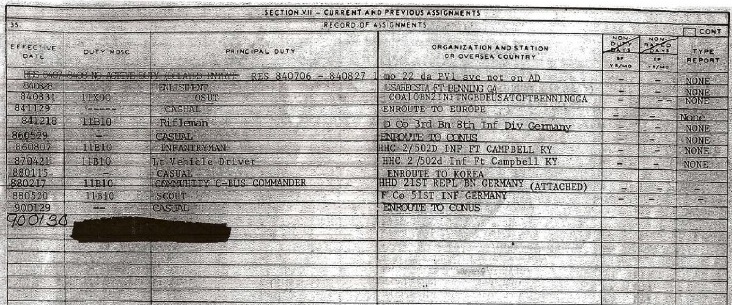 SECTION VII - CURRENT AND PREVIOUS ASSIGNMENTS
35. RECORD OF ASSIGNMENTS CONT
EFFECTIVE DATE DUTY MOSC PRINCIPAL DUTY ORGANIZATION AND STATION OR OVERSEA COUNTRY NON DUTY DAYS NON RATED DAYS TYPE REPORT
RES 840706 - 840827 1 mo 22 da PV1 svc not on AD
840828 ENLISTED FT BENNING GA NONE
840831 11X00 OSUT NONE
841129 -- CASUAL ENROUTE TO EUROPE - - NONE
841218 11B10 Rifleman D Co 3rd Bn 8th Inf Div Germany - - None
860529 -- CASUAL ENROUTE TO CONUS - - NONE
860807 11B10 INFANTRYMAN HHC 2/502D INF FT CAMPBELL KY - - NONE
870421 11B10 Lt Vehicle Driver HHC 2/502d Inf Ft Campbell KY - - NONE
880115 - CASUAL ENROUTE TO KOREA - -
880217 11B10 COMMUNITY C-BUS COMMANDER HHD 21ST REPL BN GERMANY (ATTACHED) - -
880520 11B10 SCOUT F Co 51ST INF GERMANY - - -
900129 CASUAL ENROUTE TO CONUS - -
900130